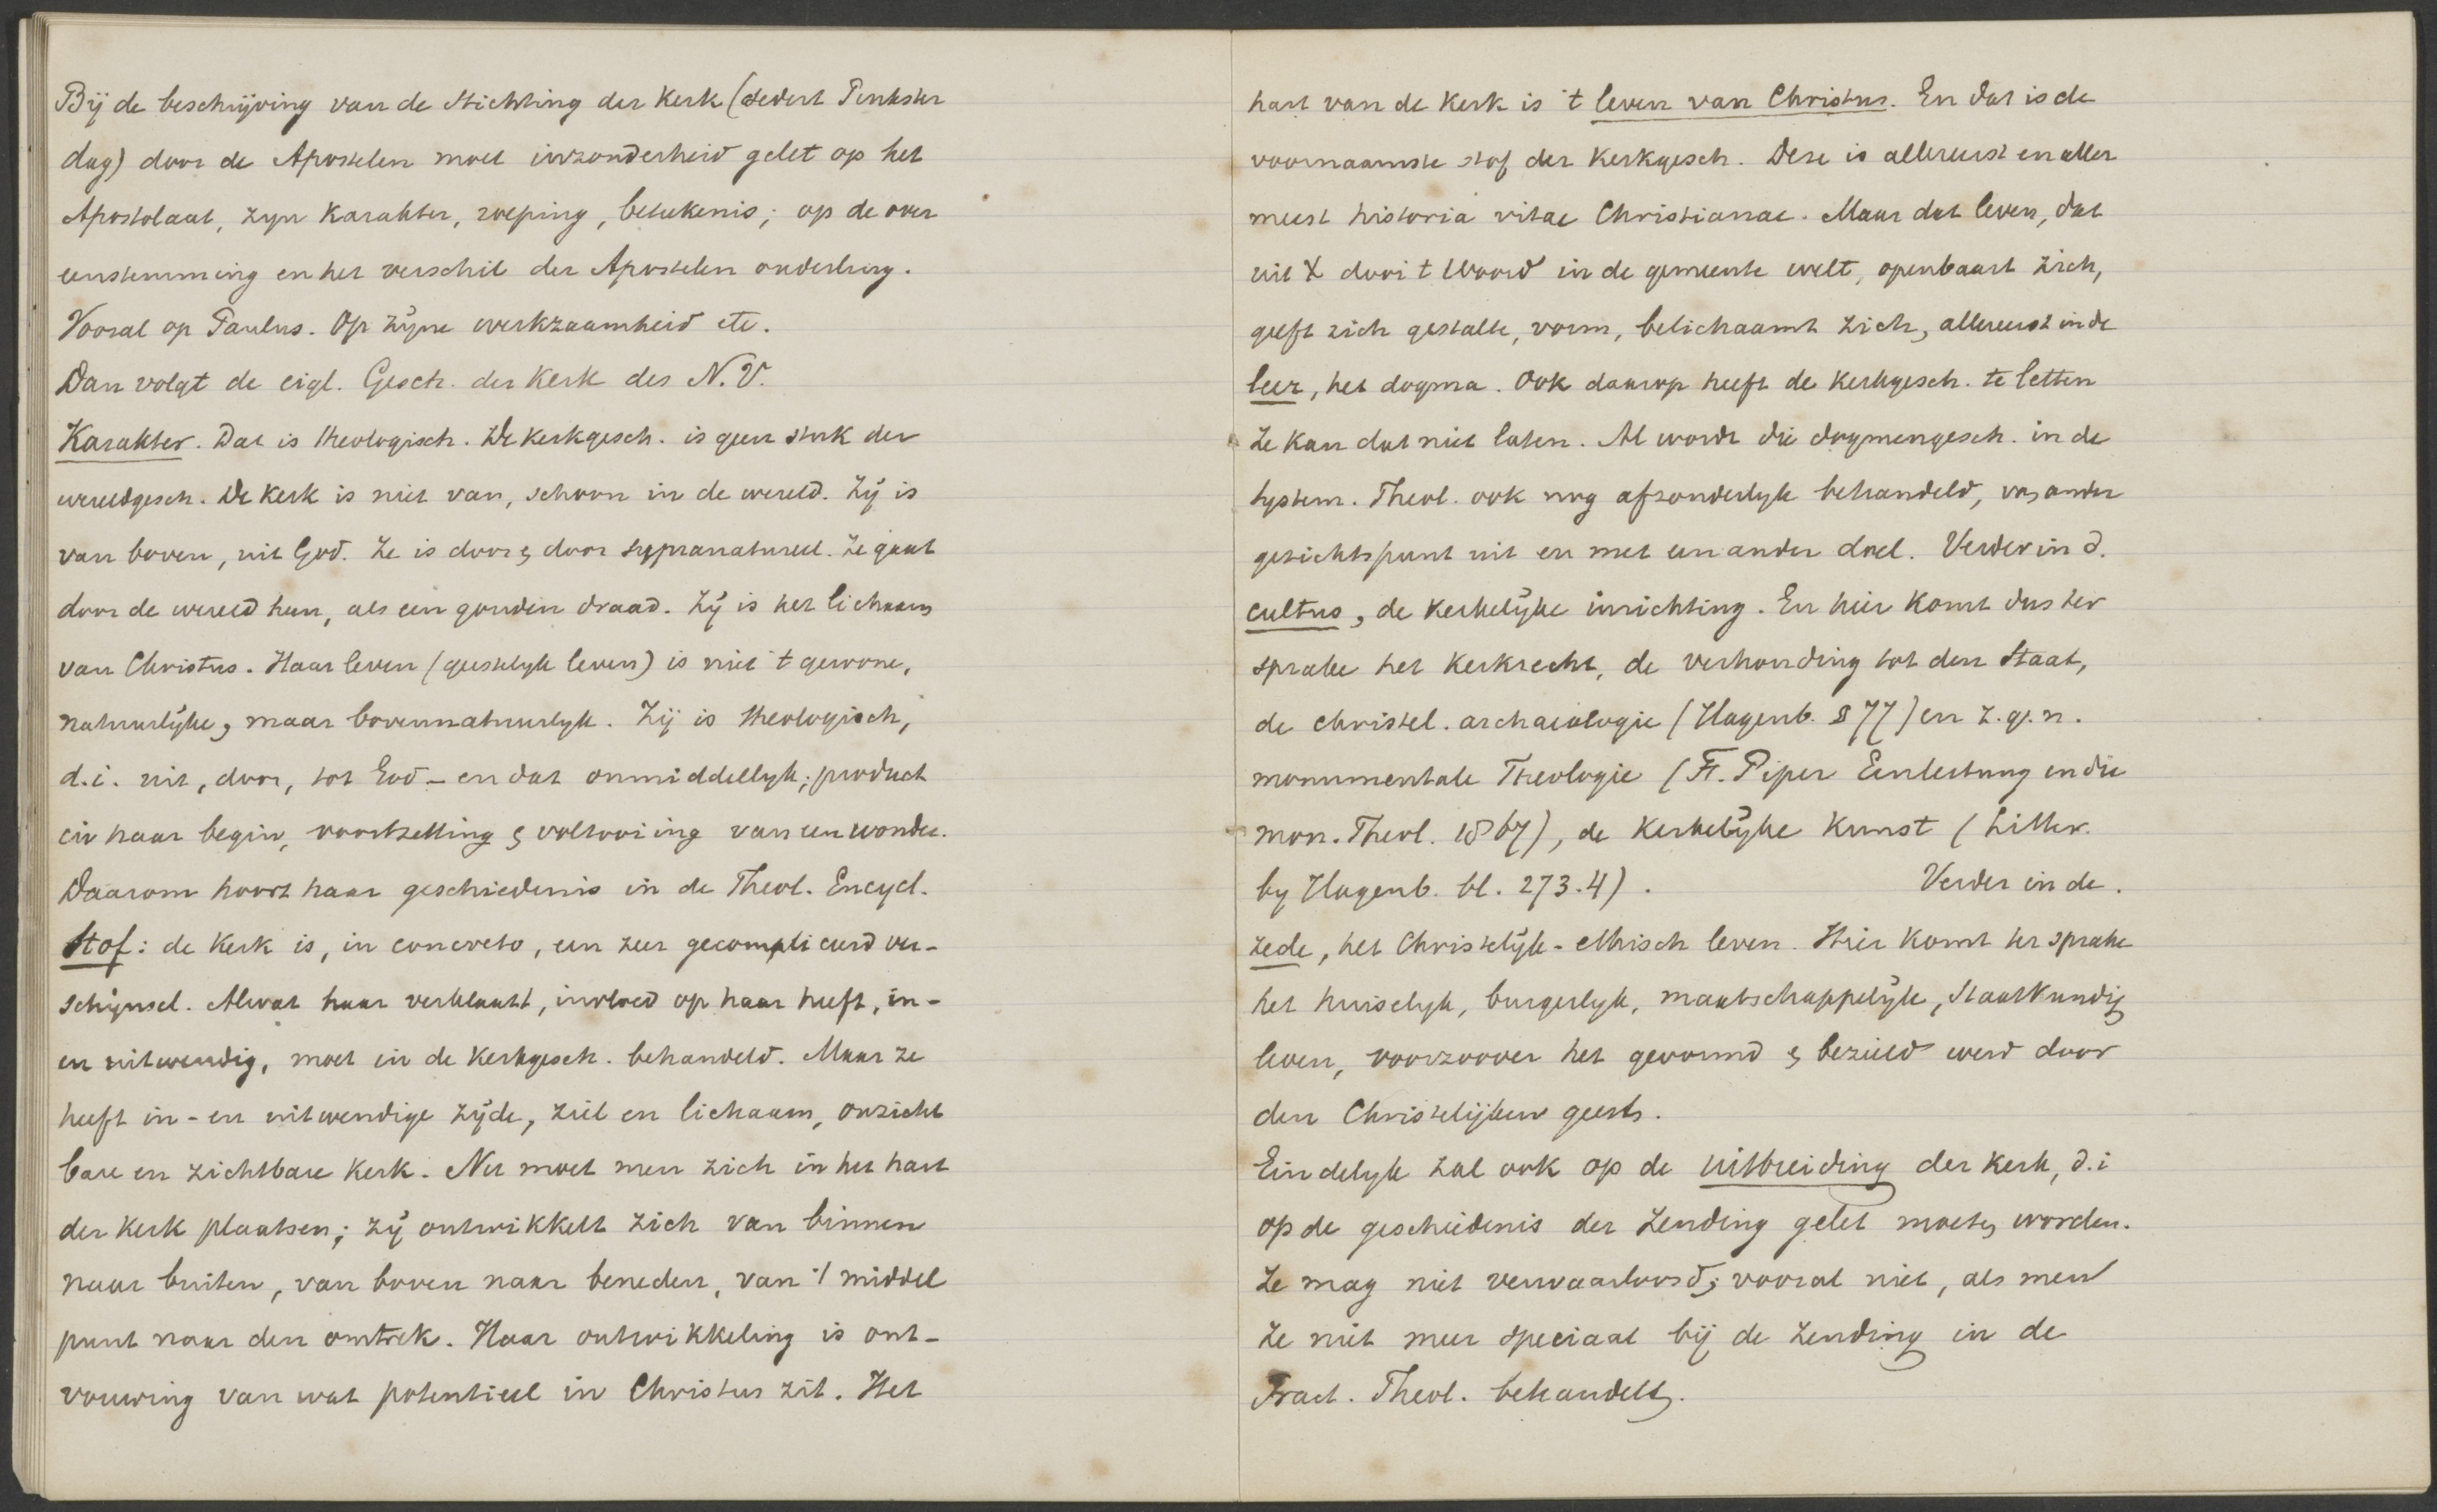 Bij de beschrijving van de Stichting der Kerk (sedert Pinkster
dag) door de Apostelen moet inzonderheid gelet op het
Apostolaat, zijn Karakter, roeping, beteekenis; op de over
eenstemming en het verschil der Apostelen onderling.
Vooral op Paulus. Op zijne werkzaamheid etc.
Dan volgt de eigl. Gesch. der Kerk des N.V.
Karakter. Dat is theologisch. De Kerkgesch. is geen stuk der
wereldgesch. De Kerk is niet van, schoon in de wereld. Zij is
van boven, uit God. Ze is door & door supranatureel. Ze gaat
door de wereld heen, als een gouden draad. Zij is het lichaam
van Christus. Haar leven (geestelijk leven) is niet 't gewone,
natuurlijke, maar bovennatuurlijk. Zij is theologisch,
d.i. uit, door, tot God – en dat onmiddellijk; product
in haar begin, voortzetting & voltooiing van een wonder.
Daarom hoort haar geschiedenis in de Theol. Encycl.
Stof: de Kerk is, in concreto, een zeer gecompliceerd ver-
schijnsel. Alwat haar verklaart, invloed op haar heeft, in-
en uitwendig, moet in de Kerkgesch. behandeld. Maar ze
heeft in- en uitwendige zijde, ziel en lichaam, onzicht
bare en zichtbare Kerk. Nu moet men zich in het hart
der Kerk plaatsen; zij ontwikkelt zich van binnen
naar buiten, van boven naar beneden, van 't middel
punt naar den omtrek. Haar ontwikkeling is ont-
vouwing van wat potentieel in Christus zit. Het
hart van de Kerk is 't leven van Christus. En dat is de
voornaamste stof der Kerkgesch. Deze is allereerst en aller
meest historia vitae Christianae. Maar dat leven, dat
uit X door 't Woord in de gemeente welt, openbaart zich,
geeft zich gestalte, vorm, belichaamt zich, allereerst in de
leer, het dogma. Ook daarop heeft de Kerkgesch. te letten
Ze kan dat niet laten. Al wordt die dogmengesch. in de
System. Theol. ook nog afzonderlijk behandeld, van ander
gezichtspunt uit en met een ander doel. Verder in d.
cultus, de Kerkelijke inrichting. En hier komt dus ter
sprake het Kerkrecht, de verhouding tot den Staat,
de christel. archaeologie (Hagenb. § 77) en z.g.n.
monumentale Theologie (F. Piper Einleitung in die
mon. Theol. 1867), de Kerkelijke Kunst (Litter.
by Hagenb. bl. 273.4). Verder in de.
zede, het Christelijk-ethisch leven. Hier komt ter sprake
het huiselijk, burgerlijk, maatschappelijk, Staatkundig
leven, voorzoover het gevormd & bezield werd door
den Christelijken geest.
Eindelijk zal ook op de uitbreiding der Kerk, d.i
op de geschiedenis der Zending gelet moeten worden.
Ze mag niet verwaarloosd; vooral niet, als men
ze niet meer speciaal bij de Zending in de
Pract. Theol. behandelt.